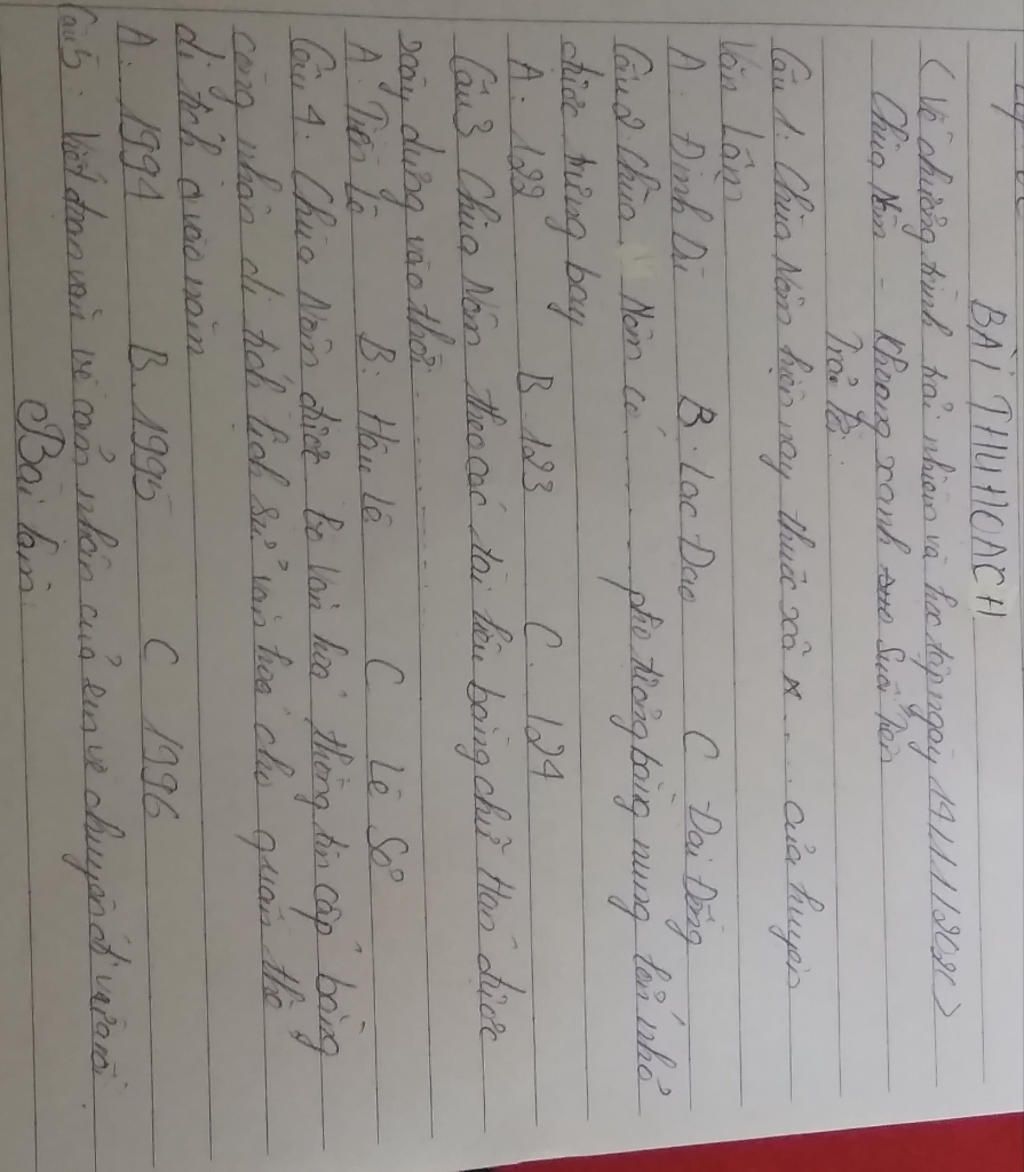 BÀI THU HOẠCH
(Về chương trình trải nghiệm và học tập ngày
Chùa Nôm - Khoang xanh Suối Tiên
Trả lời
Câu 1. Chùa Nôm hiện nay thuộc xã .... của huyện
Văn Lâm
A. Đình Dù B. Lạc Đạo C Đại Đồng
Câu 2 Chùa Nôm có ....... pho tượng bằng nung lớn nhỏ
được trưng bày
A. 122 B. 123 C. 124
Câu 3 Chùa Nôm theo các tài liệu bằng chữ Hán được
xây dựng vào thời ............
A. Tiền lê B. Hậu lê C Lê Sơ
Câu 4. Chùa Nôm được bộ Văn hoá thông tin cấp bằng
công nhận di tích lịch sử văn hoá cho quần thể
di tích vào năm
A. 1994 B. 1995 C 1996
Câu 5. Viết đoạn văn về cảm nhận của em về chuyến đi vừa rồi.
Bài làm